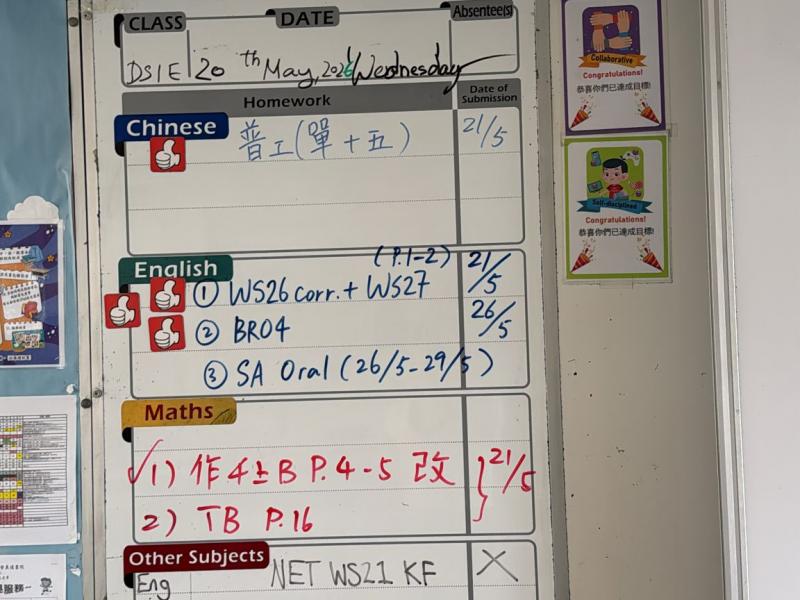 CLASS DATE Absentee(s)
DS1E 20th May, 2026 Wednesday
Homework Date of Submission
Chinese
普工(單+五) 21/5
English
(P.1-2)
① WS26 corr. + WS27 21/5
② BR04 26/5
③ SA Oral (26/5-29/5)
Maths
✓1) 作4上B P.4-5 改
2) TB P.16
} 21/5
Other Subjects
Eng NET WS21 KF X
Collaborative
Congratulations!
恭喜你們已達成目標!
Self-disciplined
Congratulations!
恭喜你們已達成目標!